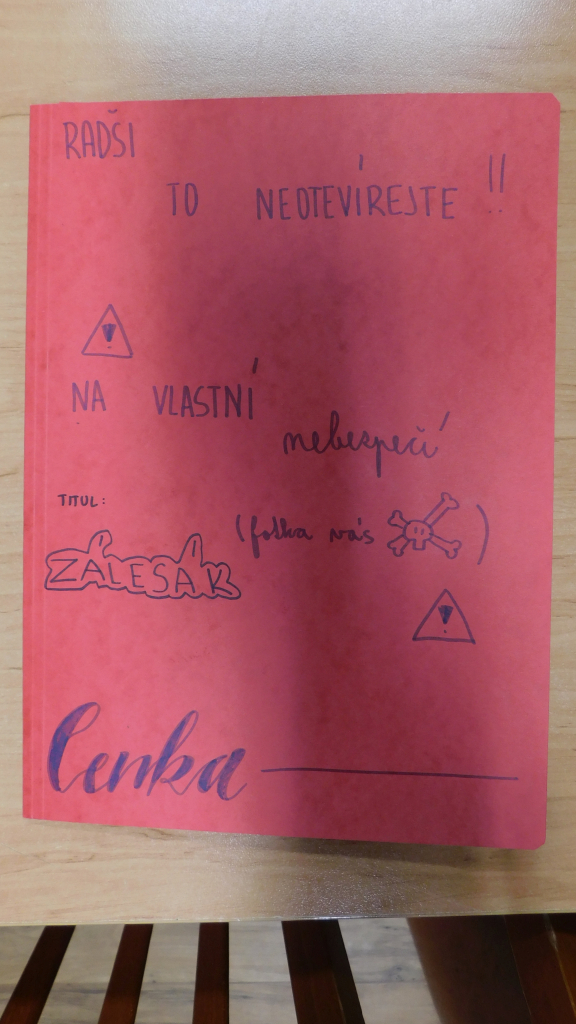 RADŠI
TO NEOTEVÍREJTE !!
NA VLASTNÍ
nebezpečí
TITUL:
(fotka vás )
ZÁLESÁK
Lenka